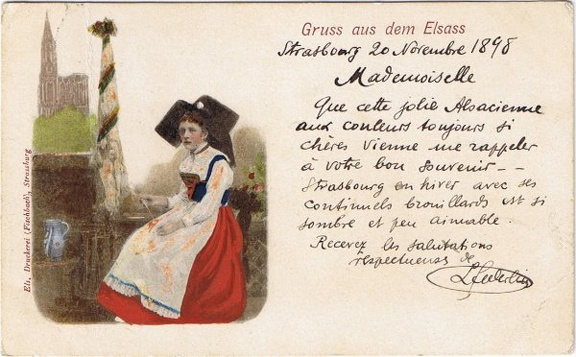 Gruss aus dem Elsass
Strasbourg 20 Novembre 1898
Mademoiselle
Que cette jolie Alsacienne
aux couleurs toujours si
chères vienne me rappeler
à votre bon souvenir--
Strasbourg en hiver avec ses
continuels brouillards est si
sombre et peu aimable.
Recevez les salutations
respectueuses de
Els. Druckerei (Fischbach), Strassburg